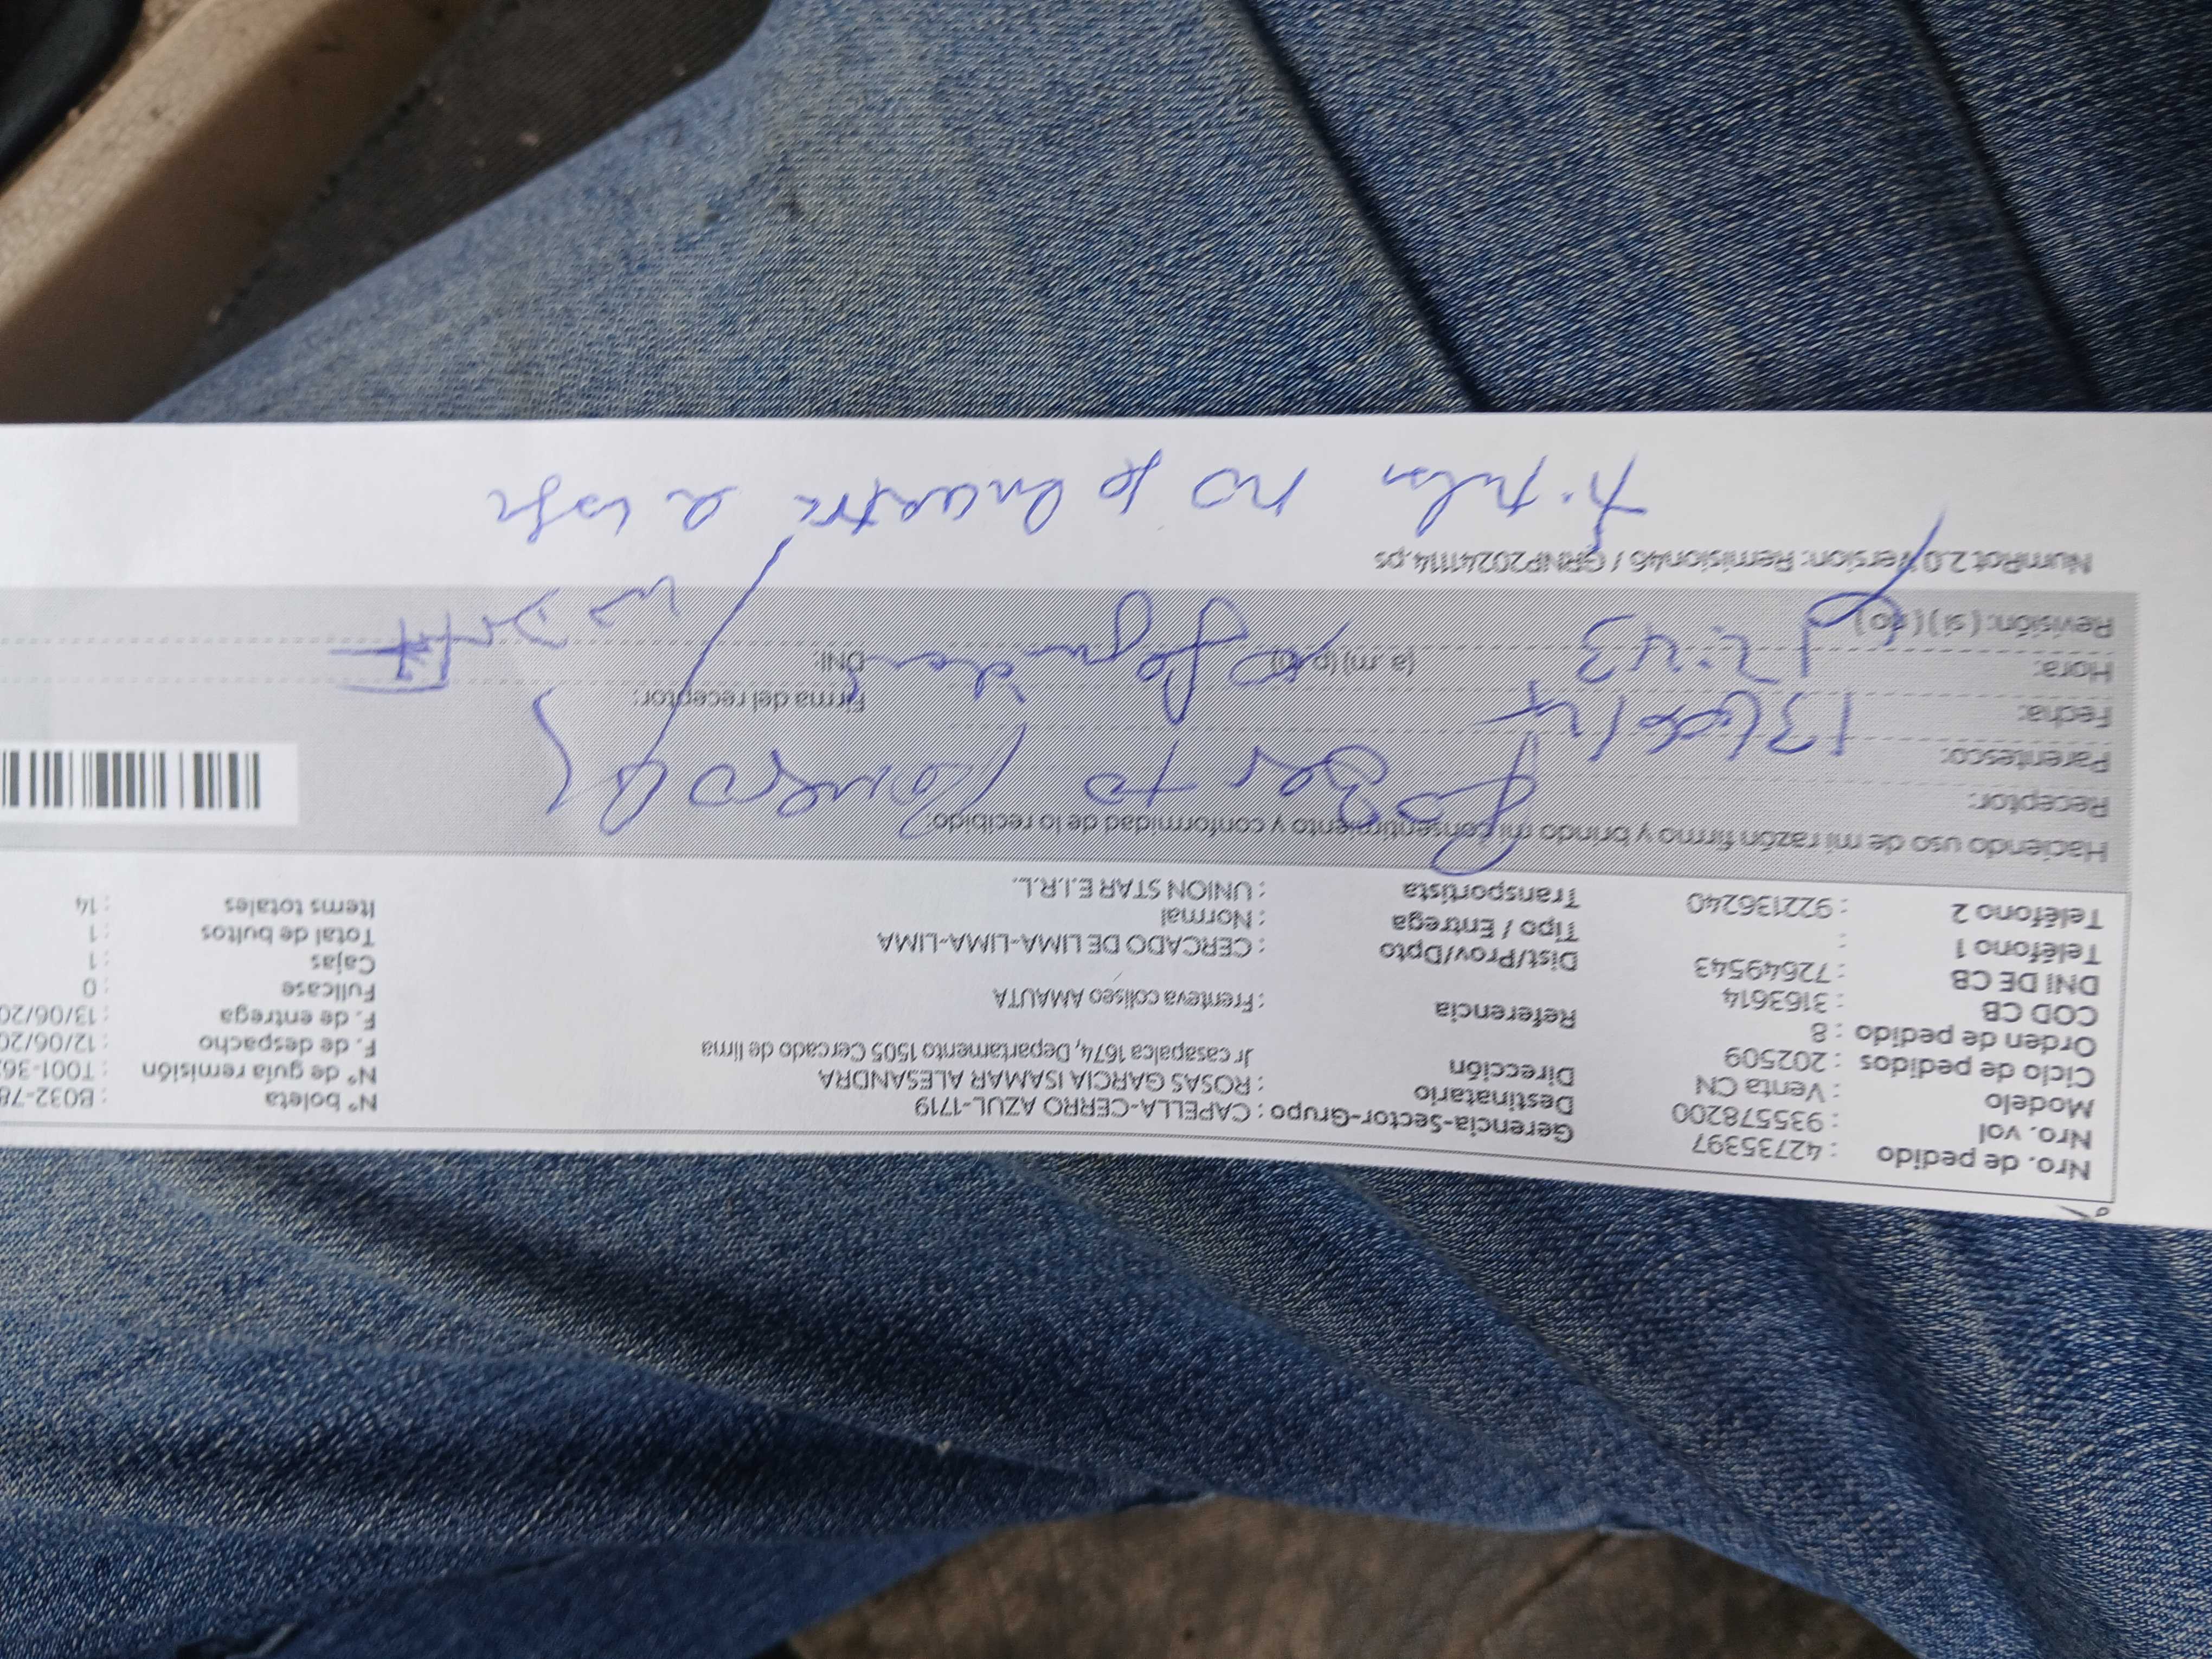 Nro. de pedido : 42735397
Nro. vol : 935578200
Modelo : Venta CN
Ciclo de pedidos : 202509
Orden de pedido : 8
COD CB : 3163614
DNI DE CB : 72649543
Teléfono 1 :
Teléfono 2 : 922136240
Gerencia-Sector-Grupo : CAPELLA-CERRO AZUL-1719
Destinatario : ROSAS GARCIA ISAMAR ALESANDRA
Dirección Jr casapalca 1674, Departamento 1505 Cercado de lima
Referencia : Frenteva coliseo AMAUTA
Dist/Prov/Dpto : CERCADO DE LIMA-LIMA-LIMA
Tipo / Entrega : Normal
Transportista : UNION STAR E.I.R.L.
N° boleta : B032-78
N° de guía remisión : T001-36
F. de despacho : 12/06/20
F. de entrega : 13/06/20
Fullcase : 0
Cajas : 1
Total de bultos : 1
Items totales : 14
Haciendo uso de mi razón firmo y brindo mi consentimiento y conformidad de lo recibido:
Receptor:
Parentesco:
Fecha:
Firma del receptor:
Hora: 12:43 (a.m) (p.m)
DNI:
Revisión: (si) (no)
NumRot 2.0 Version: Remision46 / GRNP20241114.ps
titular no se encuentra